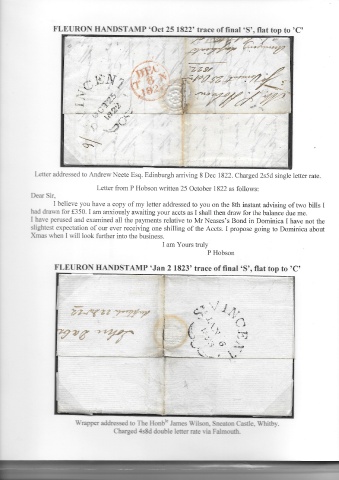 FLEURON HANDSTAMP 'Oct 25 1822' trace of final 'S', flat top to 'C'
INCENT
OCT 25
1822
DEC
182
Letter addressed to Andrew Neete Esq. Edinburgh arriving 8 Dec 1822. Charged 2s5d single letter rate.
Letter from P Hobson written 25 October 1822 as follows:
Dear Sir,
I believe you have a copy of my letter addressed to you on the 8th instant advising of two bills I
had drawn for £350. I am anxiously awaiting your accts as I shall then draw for the balance due me.
I have perused and examined all the payments relative to Mr Neases's Bond in Dominica I have not the
slightest expectation of our ever receiving one shilling of the Accts. I propose going to Dominica about
Xmas when I will look further into the business.
I am Yours truly
P Hobson
FLEURON HANDSTAMP 'Jan 2 1823' trace of final 'S', flat top to 'C'
VINCENT
JAN
Wrapper addressed to The Honble James Wilson, Sneaton Castle, Whitby.
Charged 4s8d double letter rate via Falmouth.